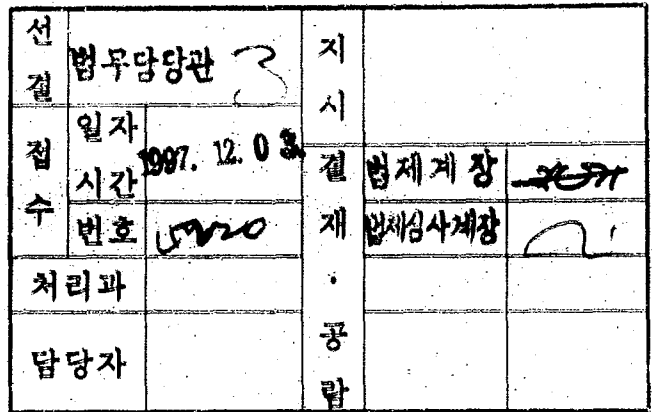 선결
법무담당관
지시
접수
일자
시간
1997. 12. 0
번호
결재·공람
법제계장
법제심사계장
처리과
담당자